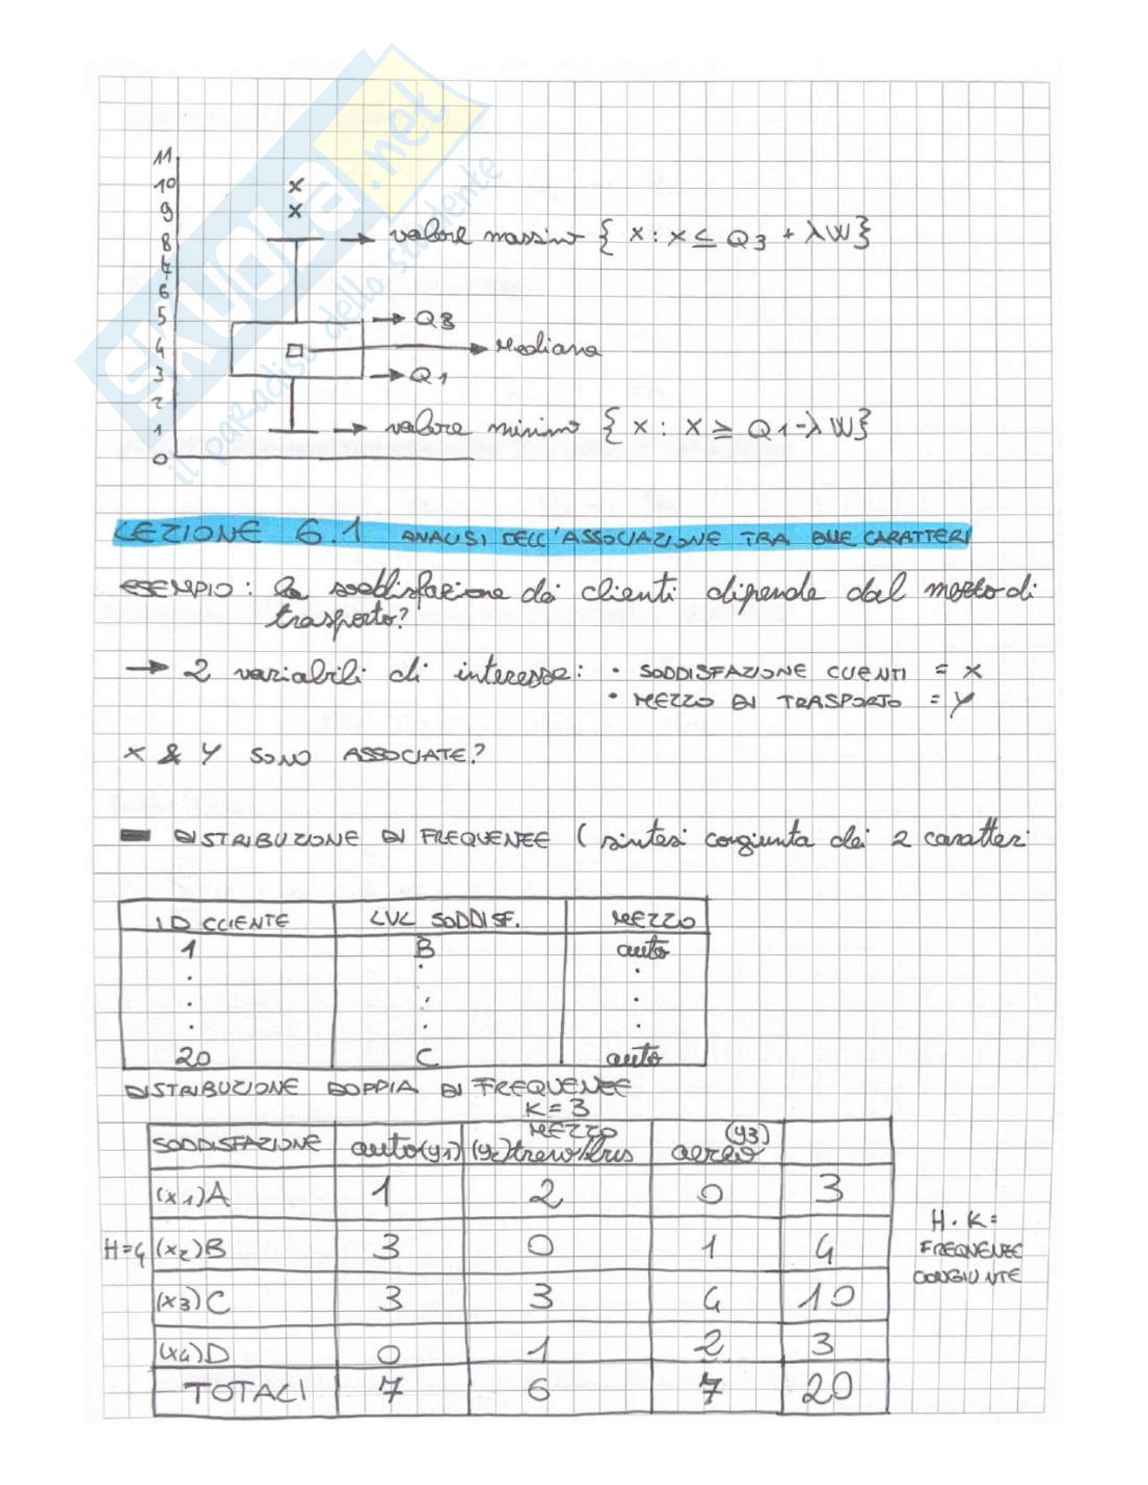 SKUOLA.net
il paradiso dello studente
11
10 x
9 x
8 → valore massimo { x : x ≤ Q3 + λW}
7
6
5 → Q3
4 → Mediana
3 → Q1
2
1 → valore minimo { x : x ≥ Q1 - λW}
0
LEZIONE 6.1 ANALISI DELL'ASSOCIAZIONE TRA DUE CARATTERI
ESEMPIO: la soddisfazione dei clienti dipende dal mezzo di
trasporto?
→ 2 variabili di interesse: • SODDISFAZIONE CLIENTI = X
• MEZZO DI TRASPORTO = Y
X & Y SONO ASSOCIATE?
DISTRIBUZIONE DI FREQUENZE ( sintesi congiunta dei 2 caratteri
ID CLIENTE LVL SODDISF. MEZZO
1 B auto
. . .
. . .
. . .
20 C auto
DISTRIBUZIONE DOPPIA DI FREQUENZE
K = 3
MEZZO
SODDISFAZIONE auto(y1) (y2)treno/bus aereo (y3)
(x1)A 1 2 0 3
H=4 (x2)B 3 0 1 4
(x3)C 3 3 4 10
(x4)D 0 1 2 3
TOTALI 7 6 7 20
H . K =
FREQUENZE
CONGIUNTE